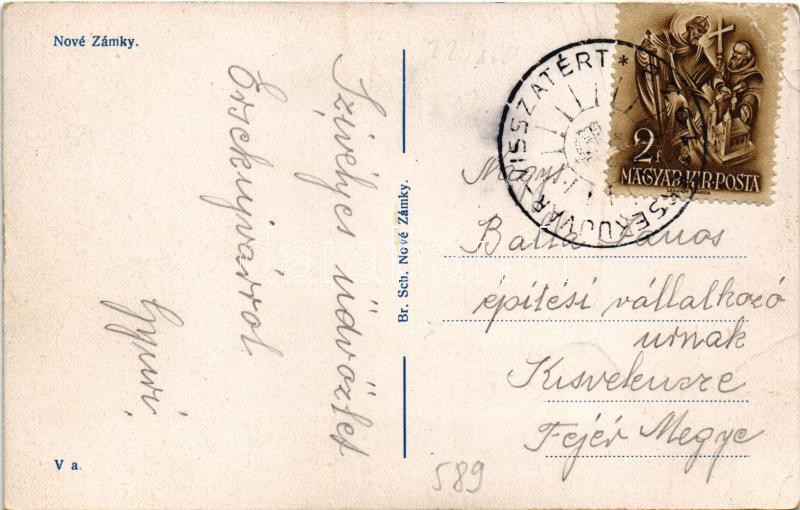 Nové Zámky.
Szívélyes üdvözlet
Érsekujvárrol
Gyuri.
V a.
Br. Sch. Nové Zámky.
ÉRSEKUJVÁR VISSZATÉRT *
2 f
MAGYAR·KIR·POSTA
Balla János
építési vállalkozó
urnak
Kisvelencze
Fejér Megye
589